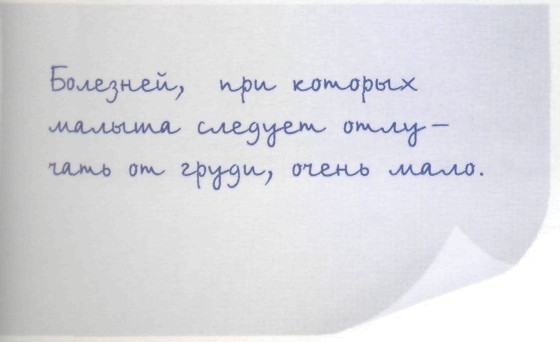 Болезней, при которых
малыша следует отлу–
чать от груди, очень мало.